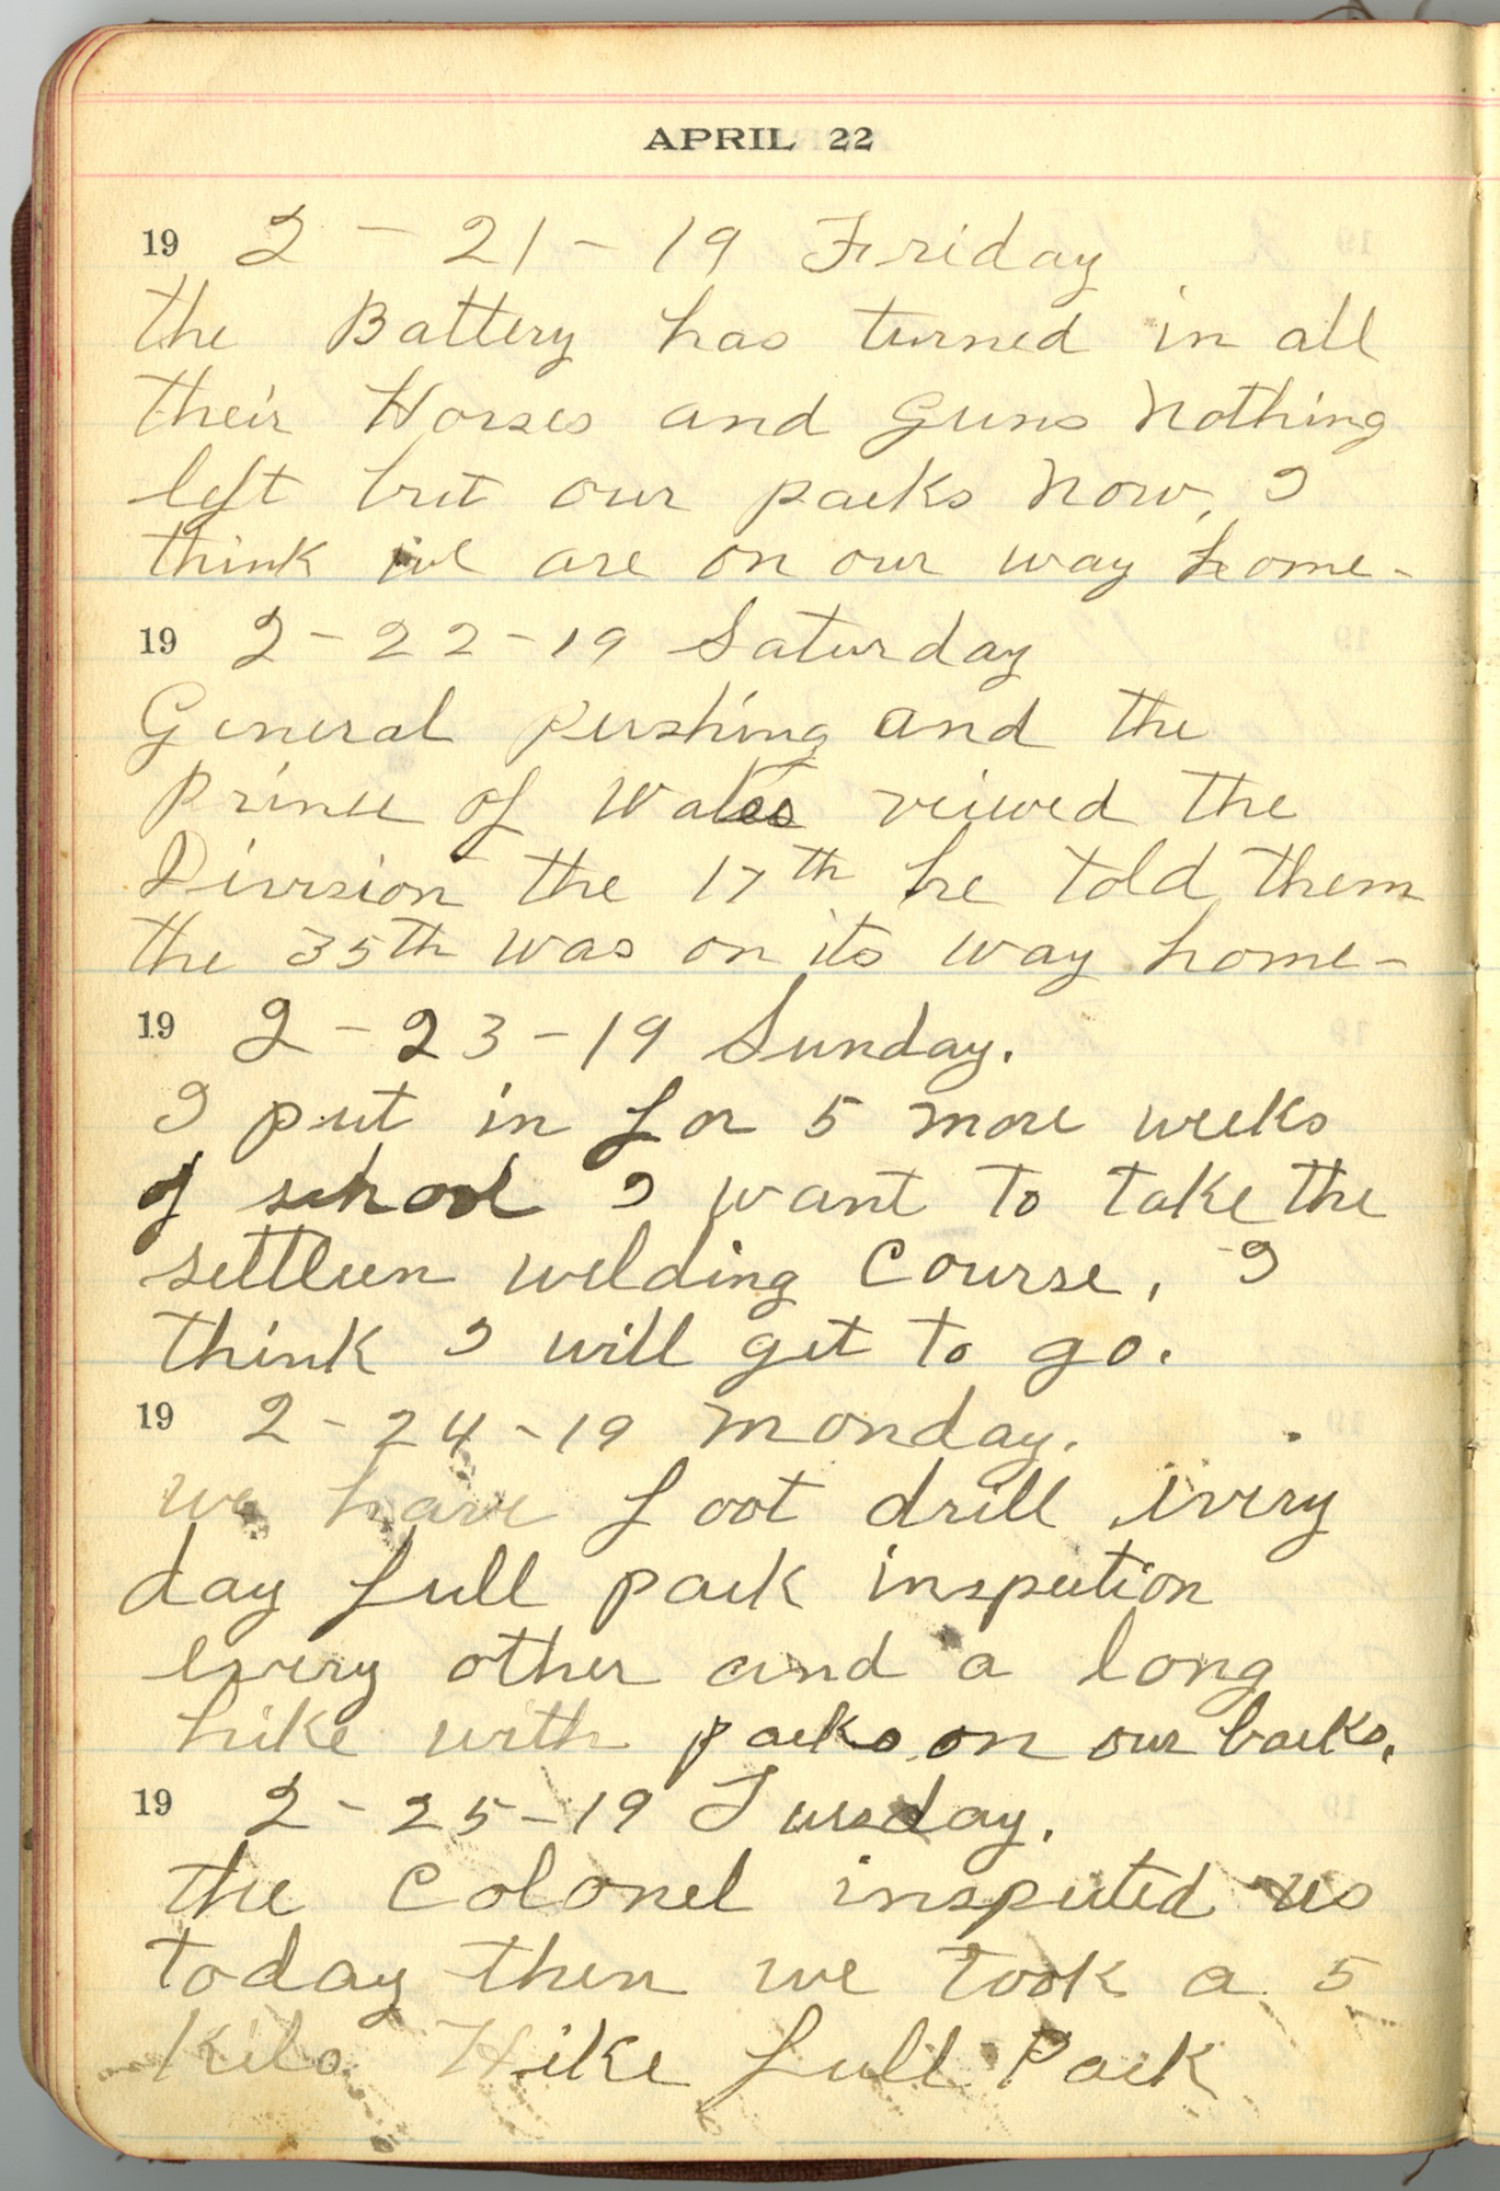 APRIL 22
19 2-21-19 Friday
the Battery has turned in all
their Horses and Guns Nothing
left but our packs Now, I
think we are on our way home-
19 2-22-19 Saturday
General Pershing and the
Prince of Wales reiwed the
Division the 17th he told them
the 35th was on its way home-
19 2-23-19 Sunday.
I put in for 5 more weeks
of school I want to take the
settleen welding Course, I
think I will get to go.
19 2-24-19 Monday.
we have foot drill every
day full pack inspection
every other and a long
hike with packs on our backs.
19 2-25-19 Tuesday.
the Colonel inspected us
today then we took a 5
Kilo Hike full Pack